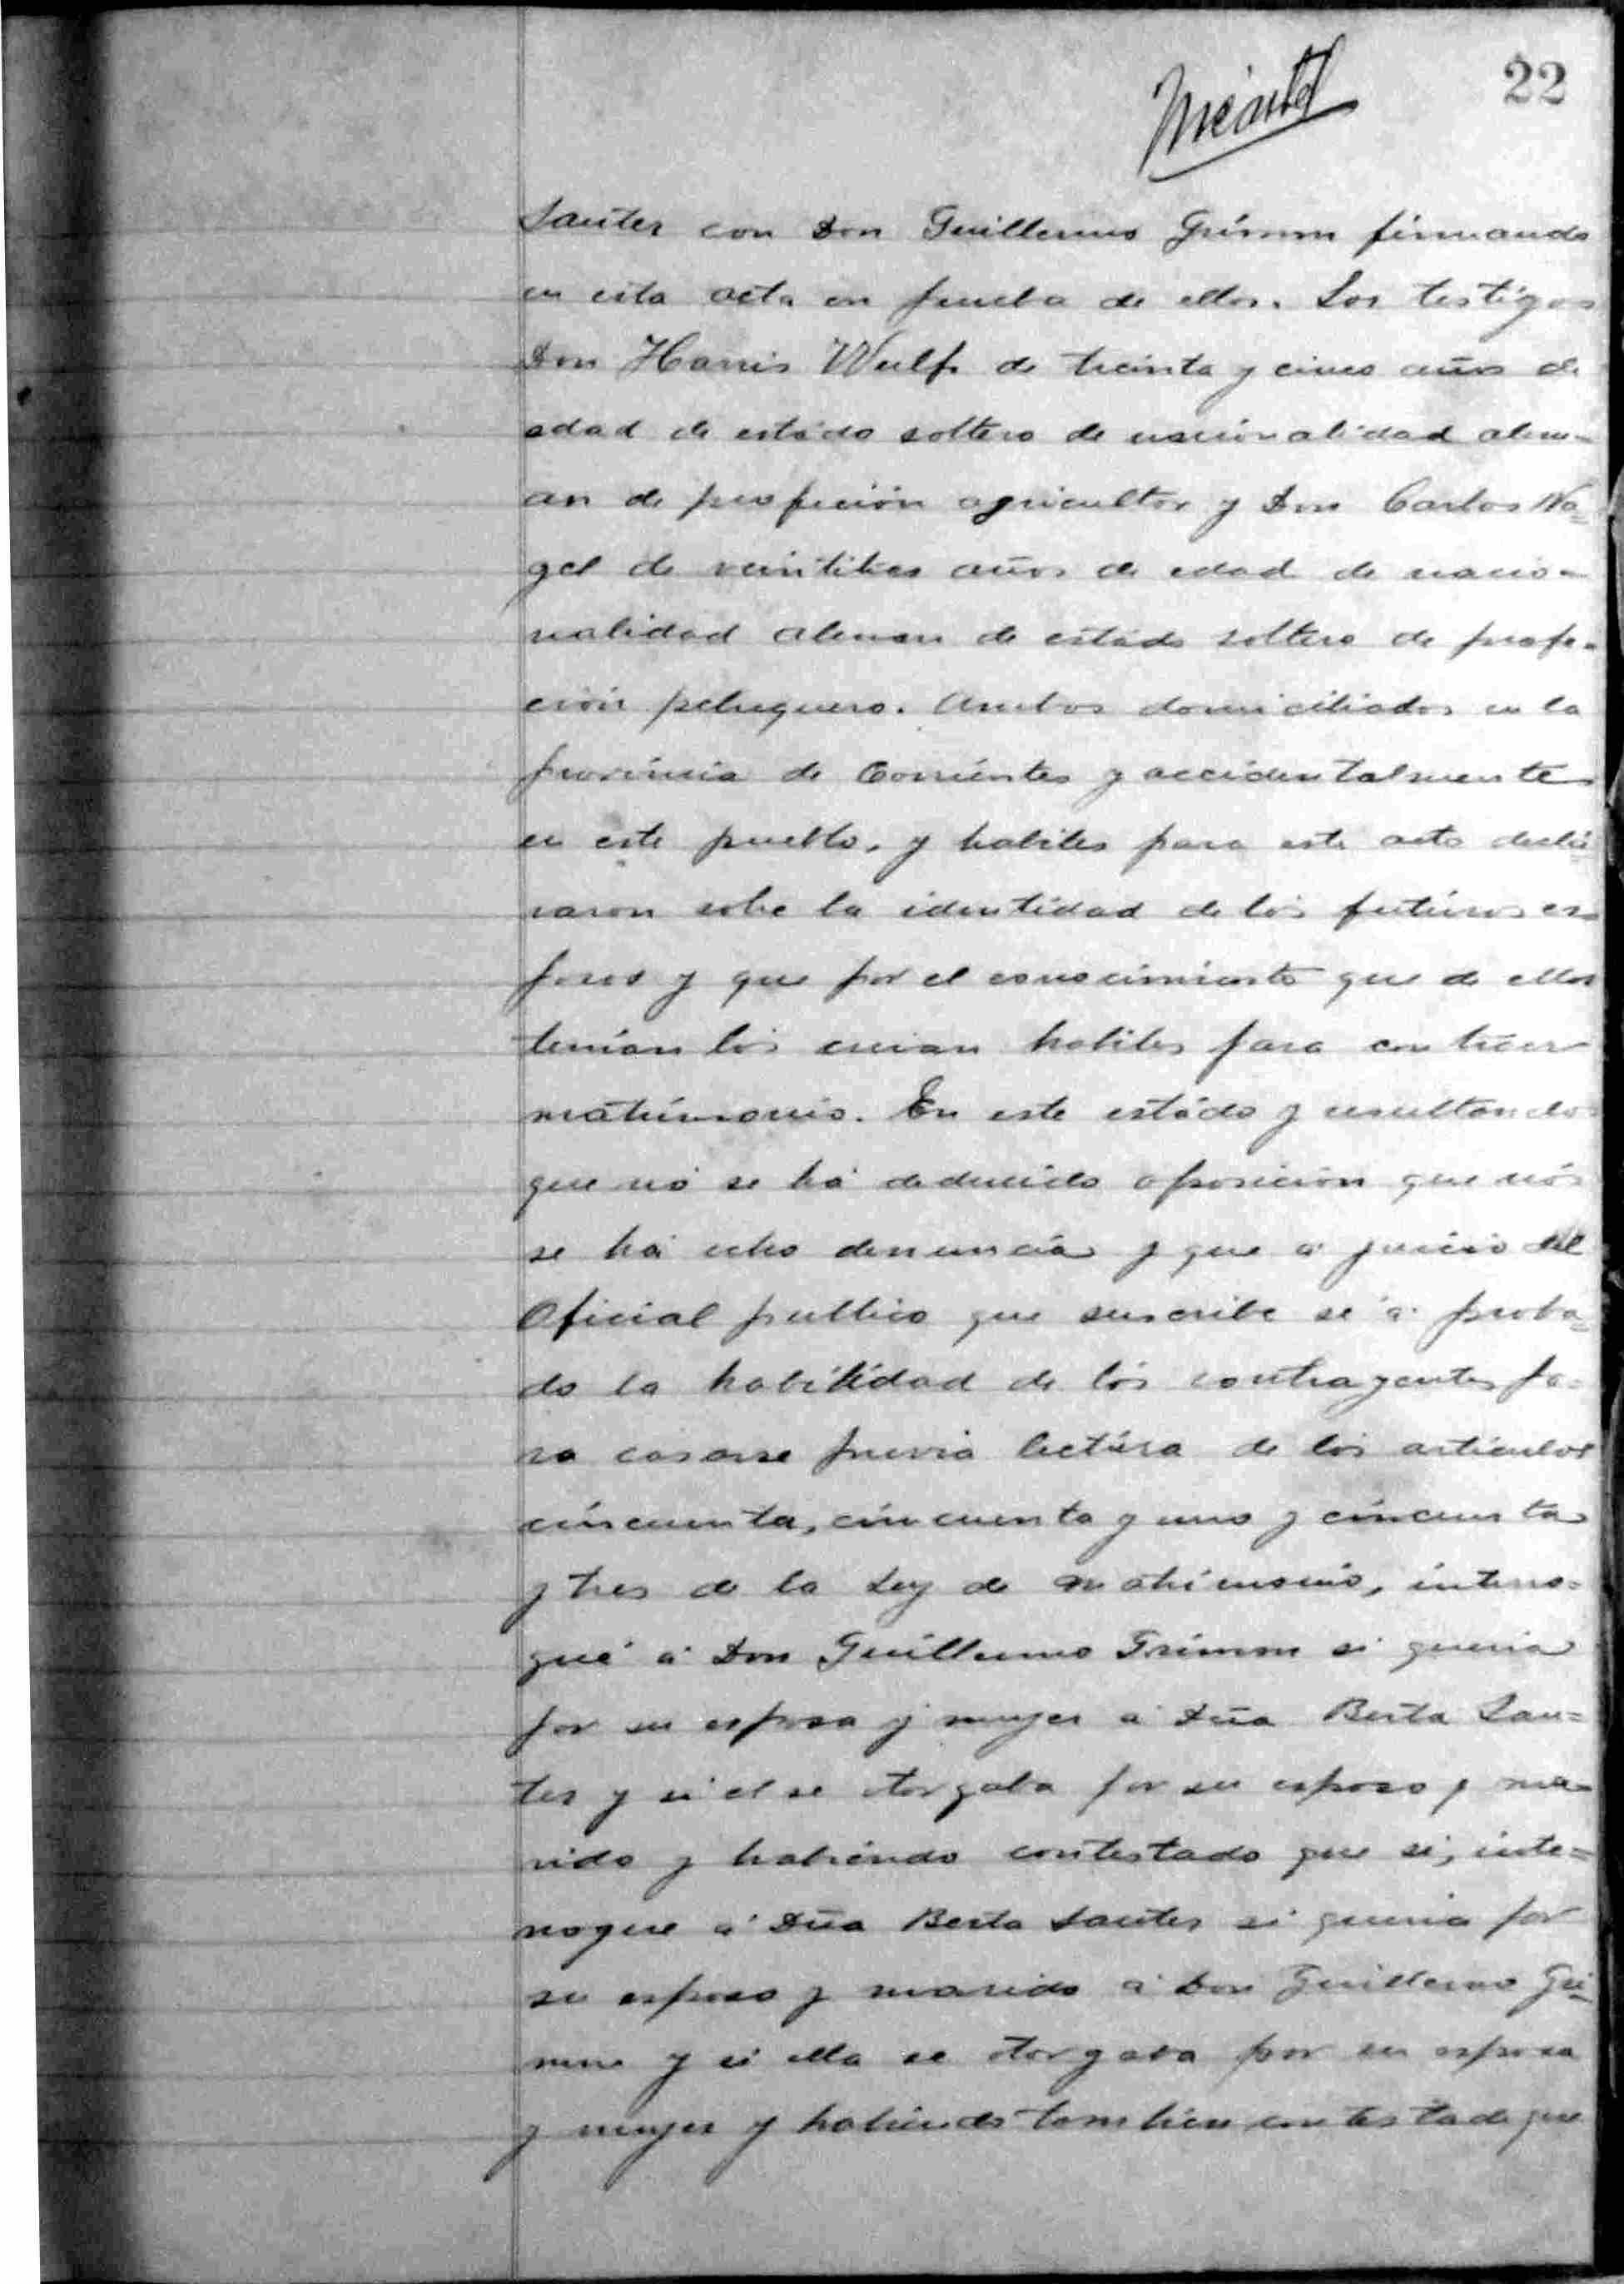 22
Sauter con Don Guillermo Grimm firmando
en esta acta en prueba de ellos. Los testigos
Don Harris Wulf de treinta y cinco años de
edad de estado soltero de nacionalidad alem-
an de profición agricultor y Don Carlos Na=
gel de veintitres años de edad de nacio-
nalidad aleman de estado soltero de profe-
ción peluquero. Ambos domiciliados en la
provincia de Corrientes y accidentalmente
en este pueblo, y habiles para este acto decla
raron sobre la identidad de los futuros es-
posos y que por el conocimiento que de ellos
tenían los creian habiles para contraer
matrimonio. En este estádo y resultando
que nó se há deducido oposición que nó
se há echo denuncia y que a juicio del
Oficial publico que suscribe se á proba=
do la habilidad de lós contrayentes pa-
ra casarse previa lectúra de los articulos
cincuenta, cincuenta y uno y cincuenta
y tres de la Ley de matrimonio, interro-
gué á Don Guillermo Grimm si queria
por su esposa y mujer a Dña Berta Sau=
ter y si el se otorgaba por su esposo y ma-
rido y habiendo contestado que si, inte=
rrogue a Dña Berta Sauter si queria por
su esposo y marido a Don Guillermo Gri
mm y si ella se otorgaba por su esposa
y mujer y habiendo tambien contestado que